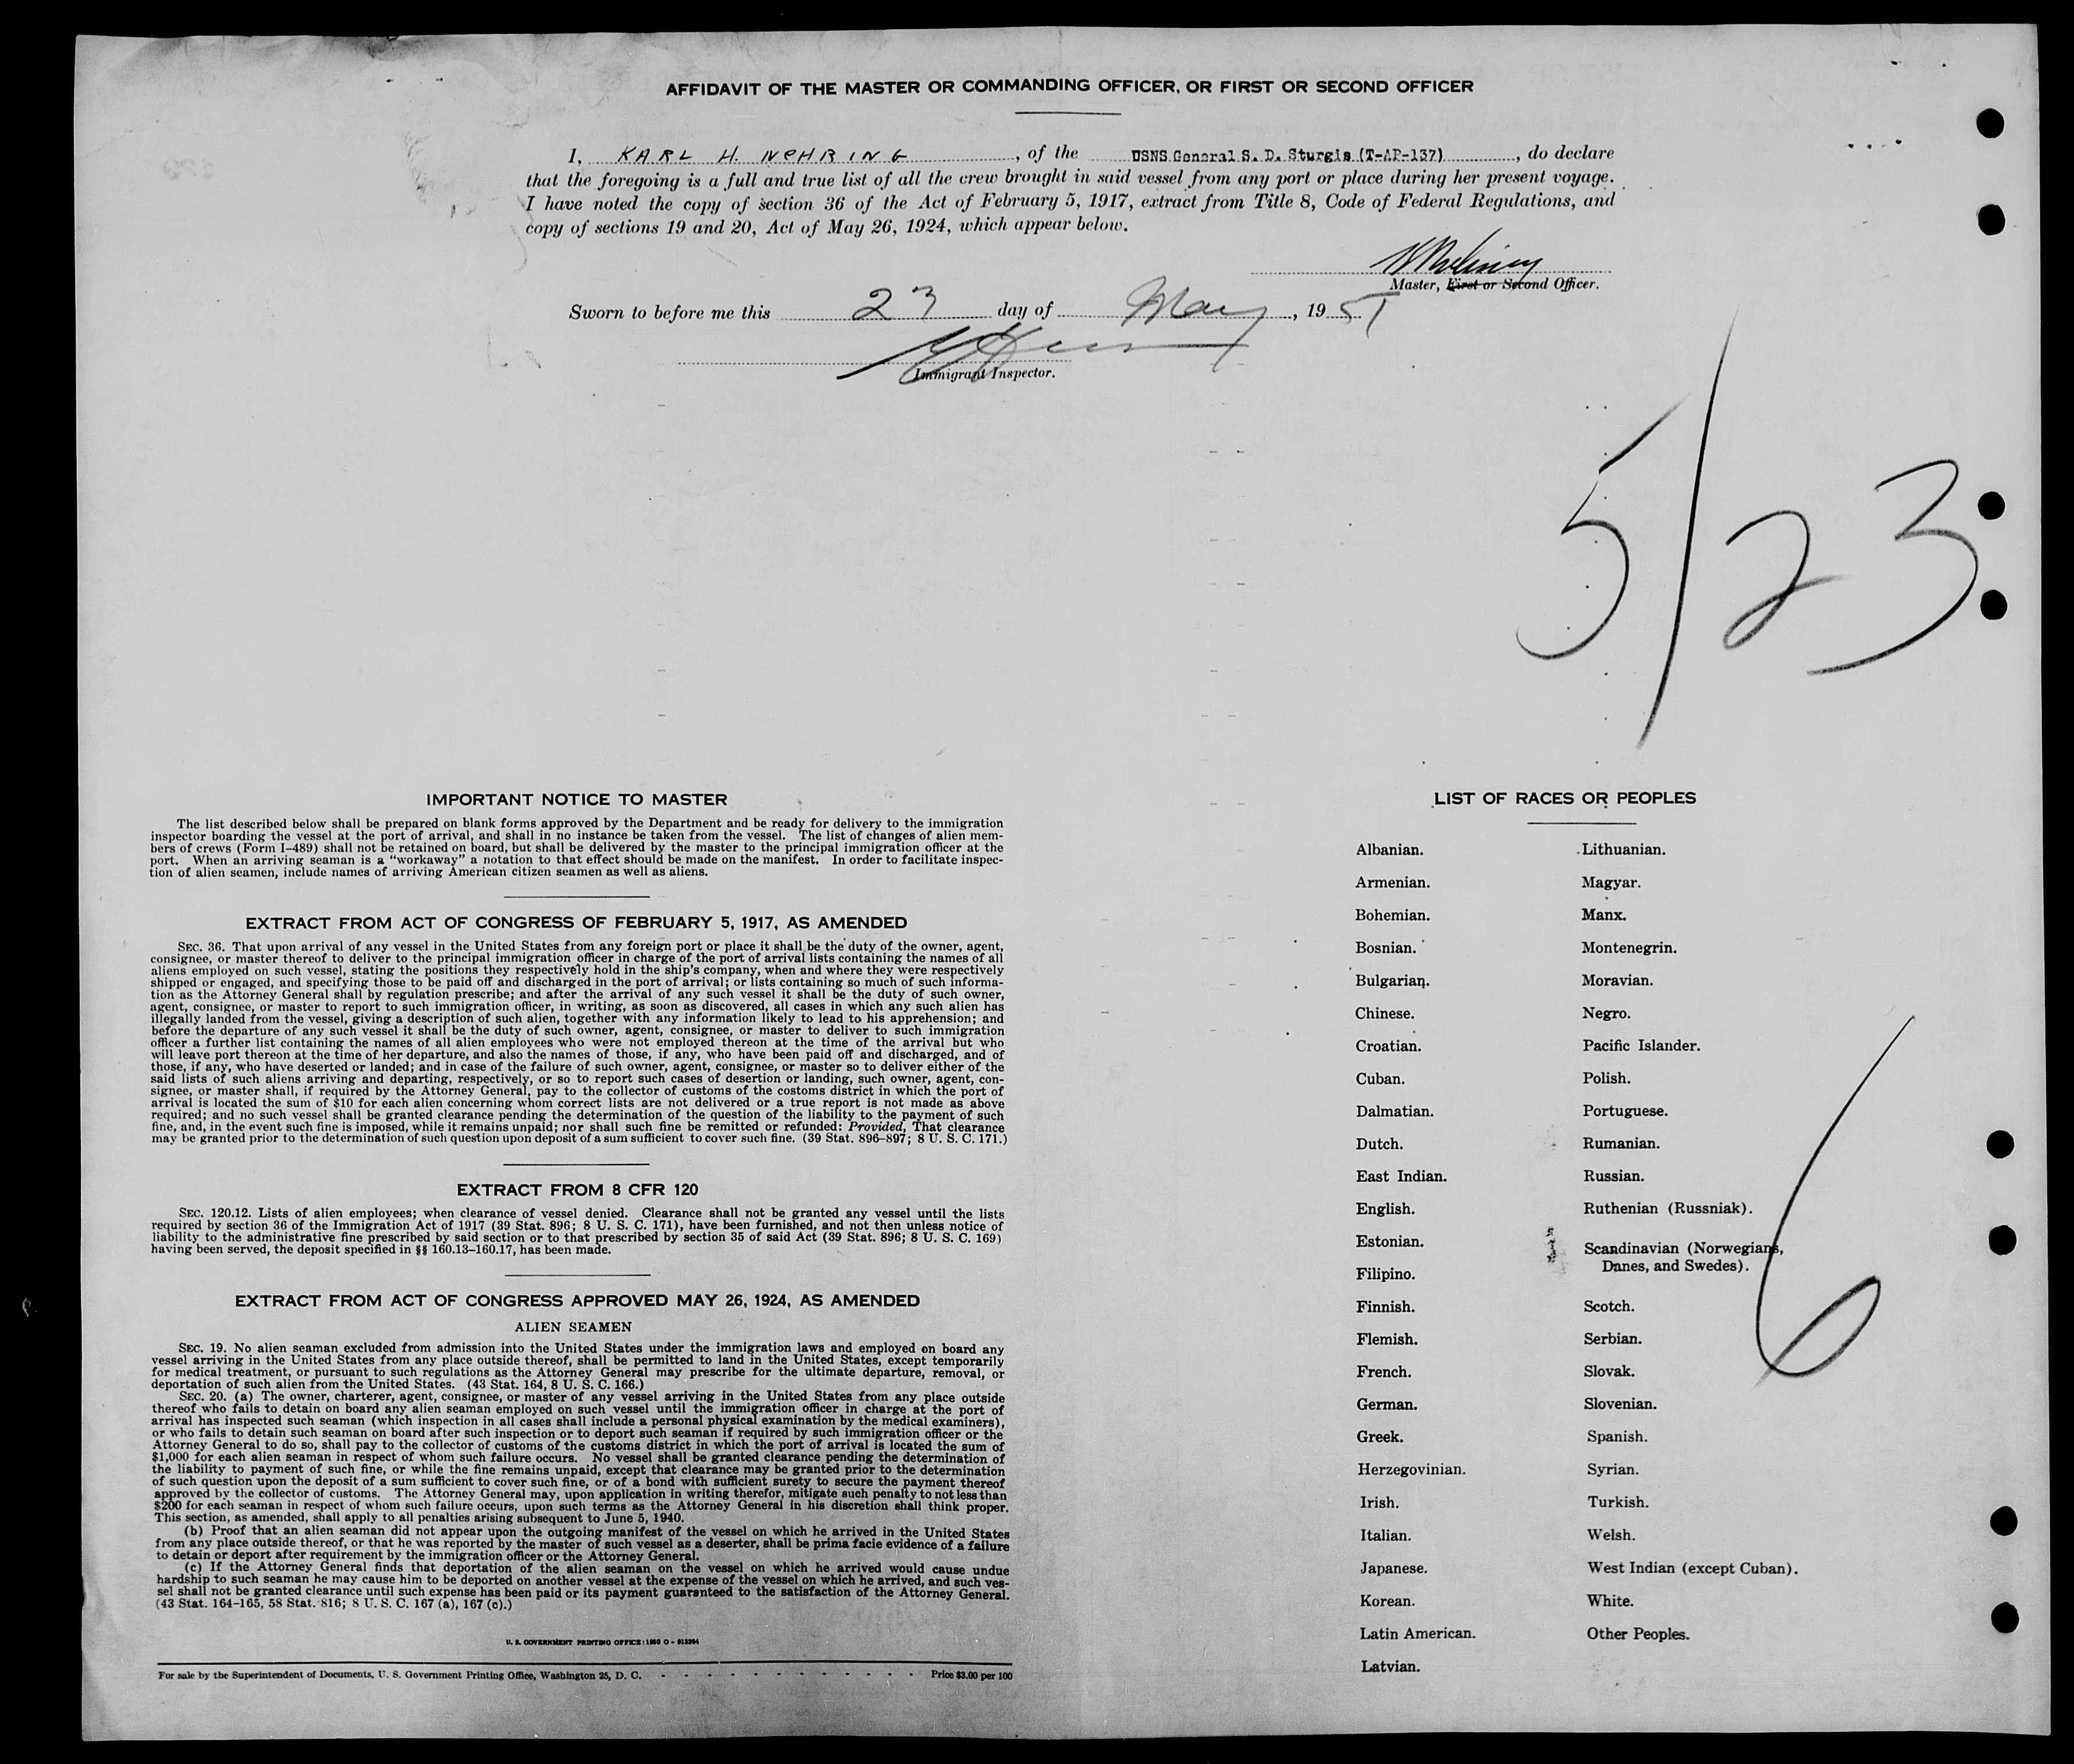 AFFIDAVIT OF THE MASTER OR COMMANDING OFFICER, OR FIRST OR SECOND OFFICER
I, KARL H. NEHRING, of the USNS General S. D. Sturgis (T-AP-137), do declare
that the foregoing is a full and true list of all the crew brought in said vessel from any port or place during her present voyage.
I have noted the copy of section 36 of the Act of February 5, 1917, extract from Title 8, Code of Federal Regulations, and
copy of sections 19 and 20, Act of May 26, 1924, which appear below.
Master, First or Second Officer.
Sworn to before me this 23 day of May, 1951
Immigrant Inspector.
5/23
IMPORTANT NOTICE TO MASTER
The list described below shall be prepared on blank forms approved by the Department and be ready for delivery to the immigration
inspector boarding the vessel at the port of arrival, and shall in no instance be taken from the vessel. The list of changes of alien mem-
bers of crews (Form I-489) shall not be retained on board, but shall be delivered by the master to the principal immigration officer at the
port. When an arriving seaman is a "workaway" a notation to that effect should be made on the manifest. In order to facilitate inspec-
tion of alien seamen, include names of arriving American citizen seamen as well as aliens.
EXTRACT FROM ACT OF CONGRESS OF FEBRUARY 5, 1917, AS AMENDED
SEC. 36. That upon arrival of any vessel in the United States from any foreign port or place it shall be the duty of the owner, agent,
consignee, or master thereof to deliver to the principal immigration officer in charge of the port of arrival lists containing the names of all
aliens employed on such vessel, stating the positions they respectively hold in the ship's company, when and where they were respectively
shipped or engaged, and specifying those to be paid off and discharged in the port of arrival; or lists containing so much of such informa-
tion as the Attorney General shall by regulation prescribe; and after the arrival of any such vessel it shall be the duty of such owner,
agent, consignee, or master to report to such immigration officer, in writing, as soon as discovered, all cases in which any such alien has
illegally landed from the vessel, giving a description of such alien, together with any information likely to lead to his apprehension; and
before the departure of any such vessel it shall be the duty of such owner, agent, consignee, or master to deliver to such immigration
officer a further list containing the names of all alien employees who were not employed thereon at the time of the arrival but who
will leave port thereon at the time of her departure, and also the names of those, if any, who have been paid off and discharged, and of
those, if any, who have deserted or landed; and in case of the failure of such owner, agent, consignee, or master so to deliver either of the
said lists of such aliens arriving and departing, respectively, or so to report such cases of desertion or landing, such owner, agent, con-
signee, or master shall, if required by the Attorney General, pay to the collector of customs of the costoms district in which the port of
arrival is located the sum of $10 for each alien concerning whom correct lists are not delivered or a true report is not made as above
required; and no such vessel shall be granted clearance pending the determination of the question of the liability to the payment of such
fine, and, in the event such fine is imposed, while it remains unpaid; nor shall such fine be remitted or refunded: Provided, That clearance
may be granted prior to the determination of such question upon deposit of a sum sufficient to cover such fine. (39 Stat. 896-897; 8 U. S. C. 171.)
EXTRACT FROM 8 CFR 120
SEC. 120.12. Lists of alien employees; when clearance of vessel denied. Clearance shall not be granted any vessel until the lists
required by section 36 of the Immigration Act of 1917 (39 Stat. 896; 8 U. S. C. 171), have been furnished, and not then unless notice of
liability to the administrative fine prescribed by said section or to that prescribed by section 35 of said Act (39 Stat. 896; 8 U. S. C. 169)
having been served, the deposit specified in §§ 160.13-160.17, has been made.
EXTRACT FROM ACT OF CONGRESS APPROVED MAY 26, 1924, AS AMENDED
ALIEN SEAMEN
SEC. 19. No alien seaman excluded from admission into the United States under the immigration laws and employed on board any
vessel arriving in the United States from any place outside thereof, shall be permitted to land in the United States, except temporarily
for medical treatment, or pursuant to such regulations as the Attorney General may prescribe for the ultimate departure, removal, or
deportation of such alien from the United States. (43 Stat. 164, 8 U. S. C. 166.)
SEC. 20. (a) The owner, charterer, agent, consignee, or master of any vessel arriving in the United States from any place outside
thereof who fails to detain on board any alien seaman employed on such vessel until the immigration officer in charge at the port of
arrival has inspected such seaman (which inspection in all cases shall include a personal physical examination by the medical examiners),
or who fails to detain such seaman on board after such inspection or to deport such seaman if required by such immigration officer or the
Attorney General to do so, shall pay to the collector of customs of the customs district in which the port of arrival is located the sum of
$1,000 for each alien seaman in respect of whom such failure occurs. No vessel shall be granted clearance pending the determination of
the liability to payment of such fine, or while the fine remains unpaid, except that clearance may be granted prior to the determination
of such question upon the deposit of a sum sufficient to cover such fine, or of a bond with sufficient surety to secure the payment thereof
approved by the collector of customs. The Attorney General may, upon application in writing therefor, mitigate such penalty to not less than
$200 for each seaman in respect of whom such failure occurs, upon such terms as the Attorney General in his discretion shall think proper.
This section, as amended, shall apply to all penalties arising subsequent to June 5, 1940.
(b) Proof that an alien seaman did not appear upon the outgoing manifest of the vessel on which he arrived in the United States
from any place outside thereof, or that he was reported by the master of such vessel as a deserter, shall be prima facie evidence of a failure
to detain or deport after requirement by the immigration officer or the Attorney General.
(c) If the Attorney General finds that deportation of the alien seaman on the vessel on which he arrived would cause undue
hardship to such seaman he may cause him to be deported on another vessel at the expense of the vessel on which he arrived, and such ves-
sel shall not be granted clearance until such expense has been paid or its payment guaranteed to the satisfaction of the Attorney General.
(43 Stat. 164-165, 58 Stat. 816; 8 U. S. C. 167 (a), 167 (c).)
U. S. GOVERNMENT PRINTING OFFICE: 1950 O - 913264
For sale by the Superintendent of Documents, U. S. Government Printing Office, Washington 25, D. C. - - - - - - - - - - - - Price $3.00 per 100
LIST OF RACES OR PEOPLES
Albanian.
Armenian.
Bohemian.
Bosnian.
Bulgarian.
Chinese.
Croatian.
Cuban.
Dalmatian.
Dutch.
East Indian.
English.
Estonian.
Filipino.
Finnish.
Flemish.
French.
German.
Greek.
Herzegovinian.
Irish.
Italian.
Japanese.
Korean.
Latin American.
Latvian.
Lithuanian.
Magyar.
Manx.
Montenegrin.
Moravian.
Negro.
Pacific Islander.
Polish.
Portuguese.
Rumanian.
Russian.
Ruthenian (Russniak).
Scandinavian (Norwegians,
Danes, and Swedes).
Scotch.
Serbian.
Slovak.
Slovenian.
Spanish.
Syrian.
Turkish.
Welsh.
West Indian (except Cuban).
White.
Other Peoples.
6